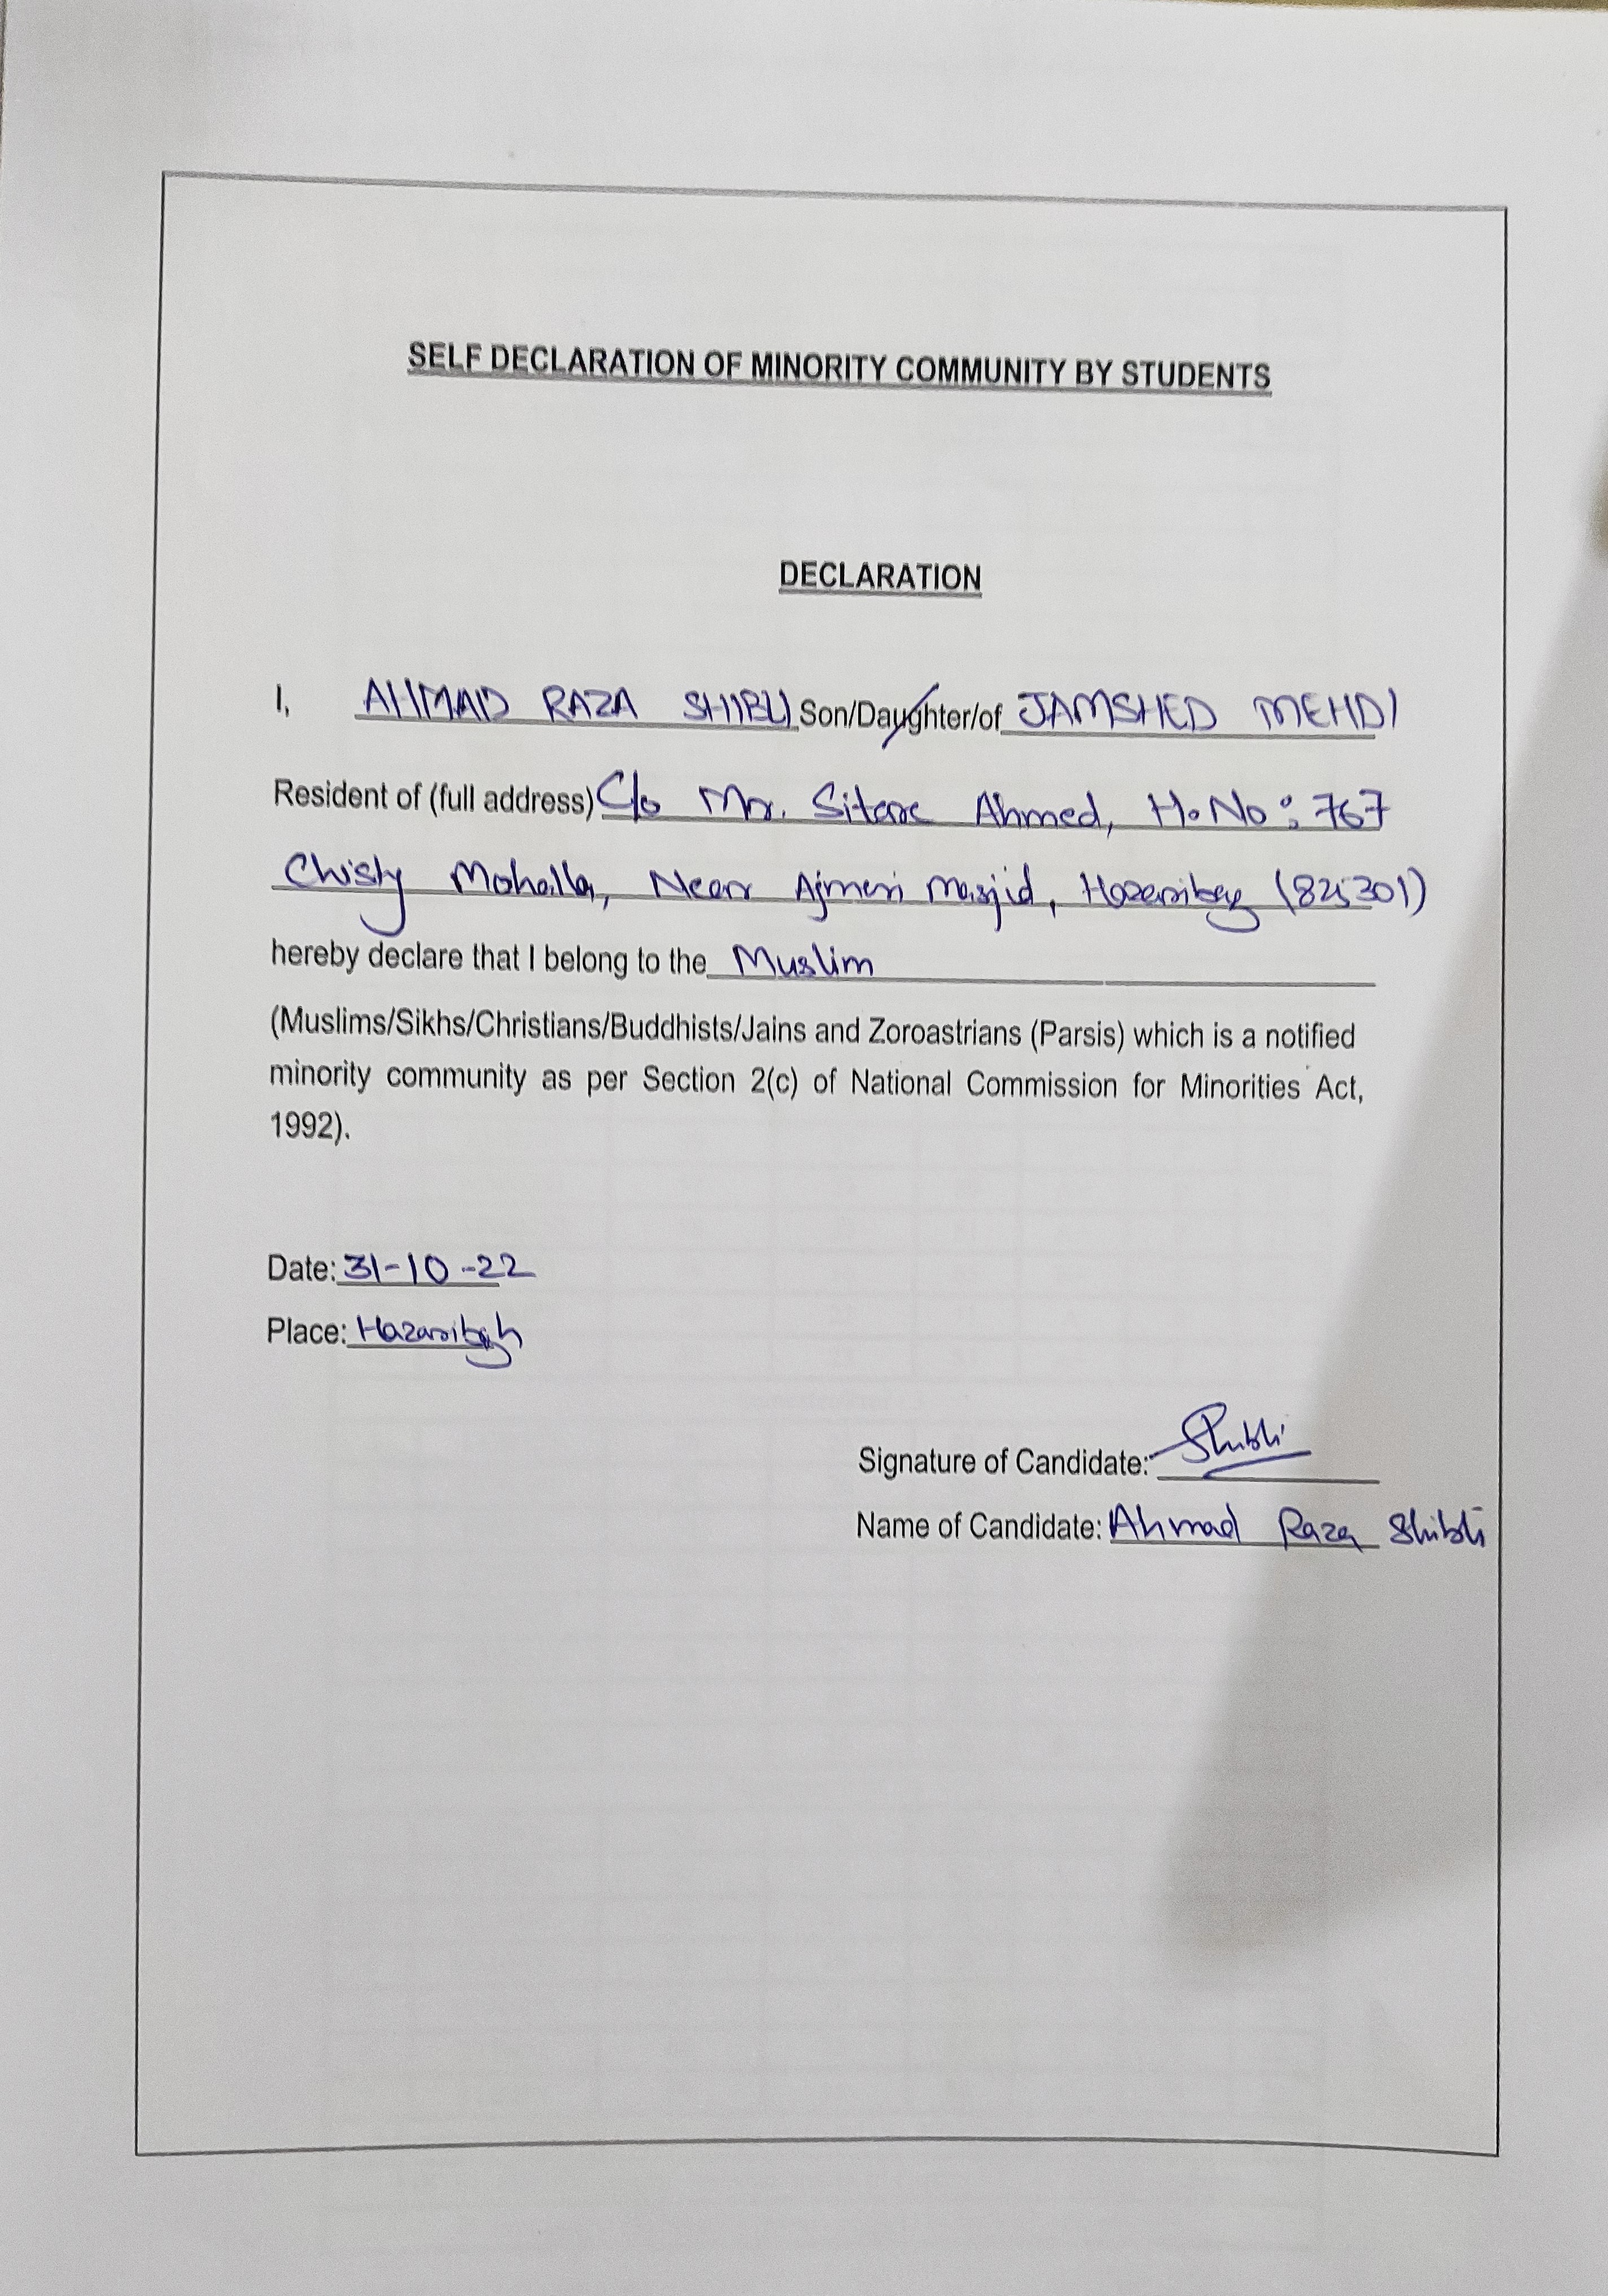 SELF DECLARATION OF MINORITY COMMUNITY BY STUDENTS
DECLARATION
I, AHMAD RAZA SHIBLI Son/Daughter/of JAMSHED MEHDI
Resident of (full address) C/o Mr. Sitare Ahmed, H.No: 767
Chisty Mohalla, Near Ajmeri Masjid, Hazaribag (825301)
hereby declare that I belong to the Muslim
(Muslims/Sikhs/Christians/Buddhists/Jains and Zoroastrians (Parsis) which is a notified
minority community as per Section 2(c) of National Commission for Minorities Act,
1992).
Date: 31-10-22
Place: Hazaribagh
Signature of Candidate: Shibli
Name of Candidate: Ahmad Raza Shibli